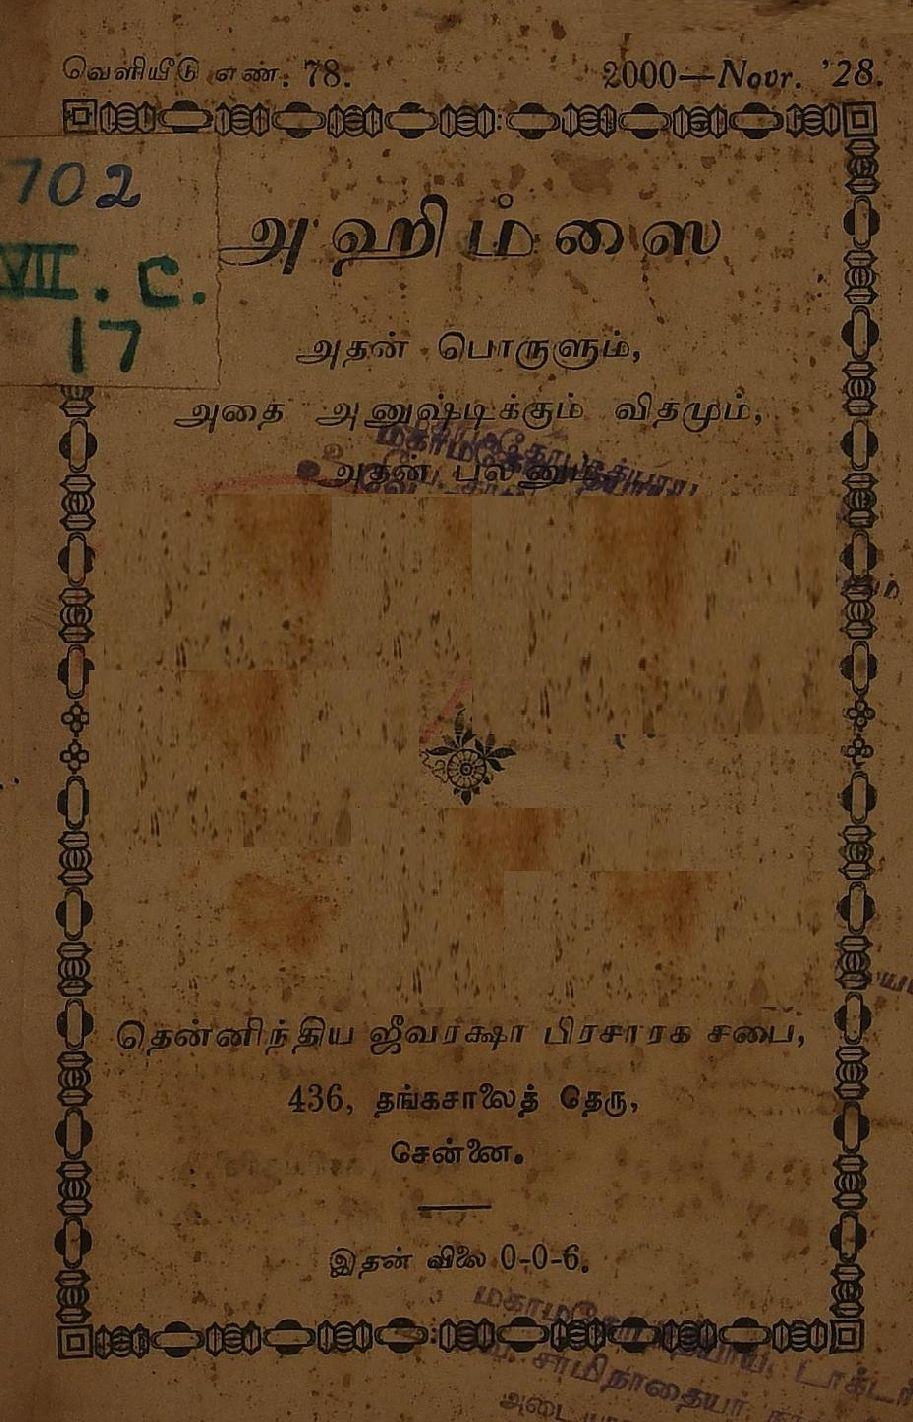 வெளியீடு எண். 78. 2000—Novr. '28.
702
VII. C.
17
அஹிம்ஸை
அதன் பொருளும்,
அதை அனுஷ்டிக்கும் விதமும்,
அதன் பலனும்
தென்னிந்திய ஜீவரக்ஷா பிரசாரக சபை,
436, தங்கசாலைத் தெரு,
சென்னை.
இதன் விலை 0-0-6.
டாக்டர்
சாமிநாதையர்